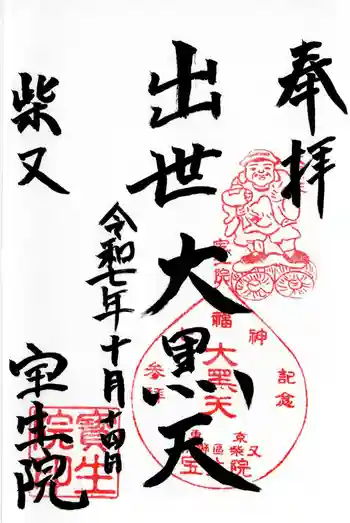 奉拝
出世大黒天
令和七年十月十四日
柴又
宝生院
宝生院
福神
大黒天
参拝
記念
寳生院印